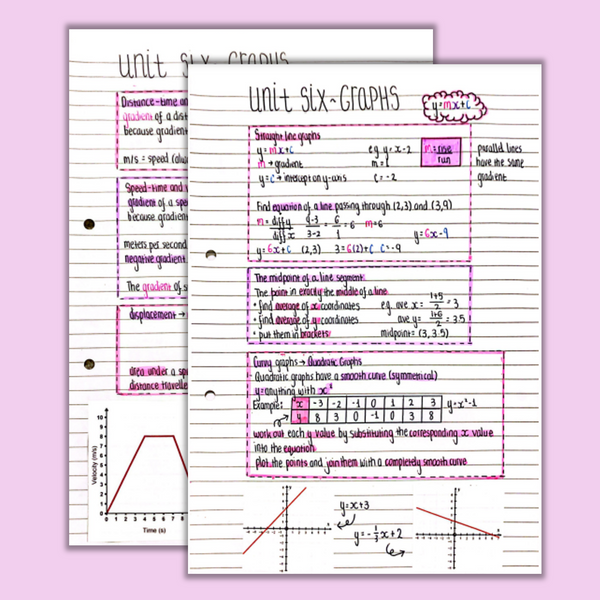 unit six - GRAPHS
Distance-time an
gradient of a dist
because gradient
m/s = speed (alwa
Speed-time and v
gradient of a spe
because gradient
meters per second
negative gradient
The gradient of s
displacement →
area under a spe
distance travelle
Velocity (m/s)
10
9
8
7
6
5
4
3
2
1
0
0 1 2 3 4 5 6 7 8
Time (s)
unit six ~ GRAPHS
y=mx+c
Straight line graphs
y=mx+c
e.g. y=x-2
m=rise/run
parallel lines
m → gradient
m=1
have the same
y=c → intercept on y-axis
c=-2
gradient
Find equation of a line passing through (2,3) and (3,9)
m= diff y/diff x = 9-3/3-2 = 6/1 = 6 m=6
y=6x-9
y=6x+c (2,3) 3=6(2)+c c=-9
The midpoint of a line segment
The point in exactly the middle of a line
• find average of x coordinates e.g. ave x = 1+5/2 = 3
• find average of y coordinates ave y = 1+6/2 = 3.5
• put them in brackets midpoint = (3, 3.5)
Curvy graphs → Quadratic Graphs
Quadratic graphs have a smooth curve (symmetrical)
y=anything with x²
Example:
x -3 -2 -1 0 1 2 3
y 8 3 0 -1 0 3 8
y=x²-1
work out each y value by substituting the corresponding x value
into the equation
plot the points and join them with a completely smooth curve
y=x+3
y=-1/3x+2